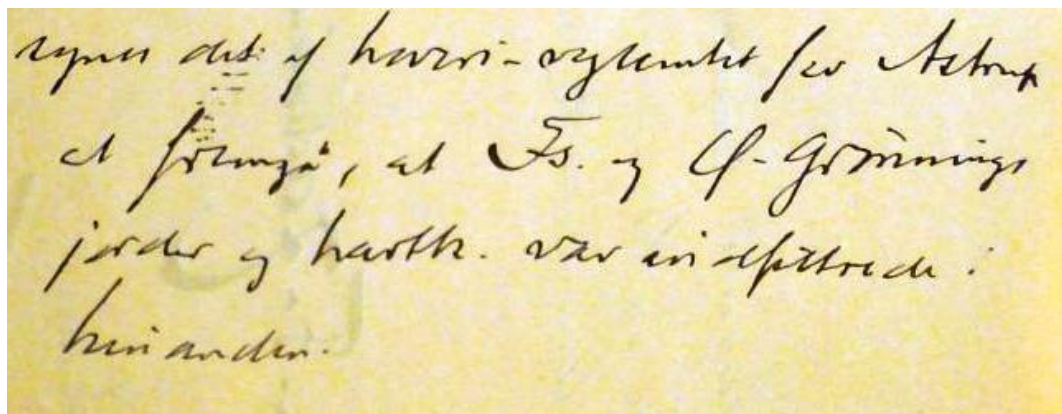 synes det af haveri-reglementet for Astrup
at fremgå, at Fs. og Ø-Grønnings
jorder og hartk. var indfiltrede i
hinanden.